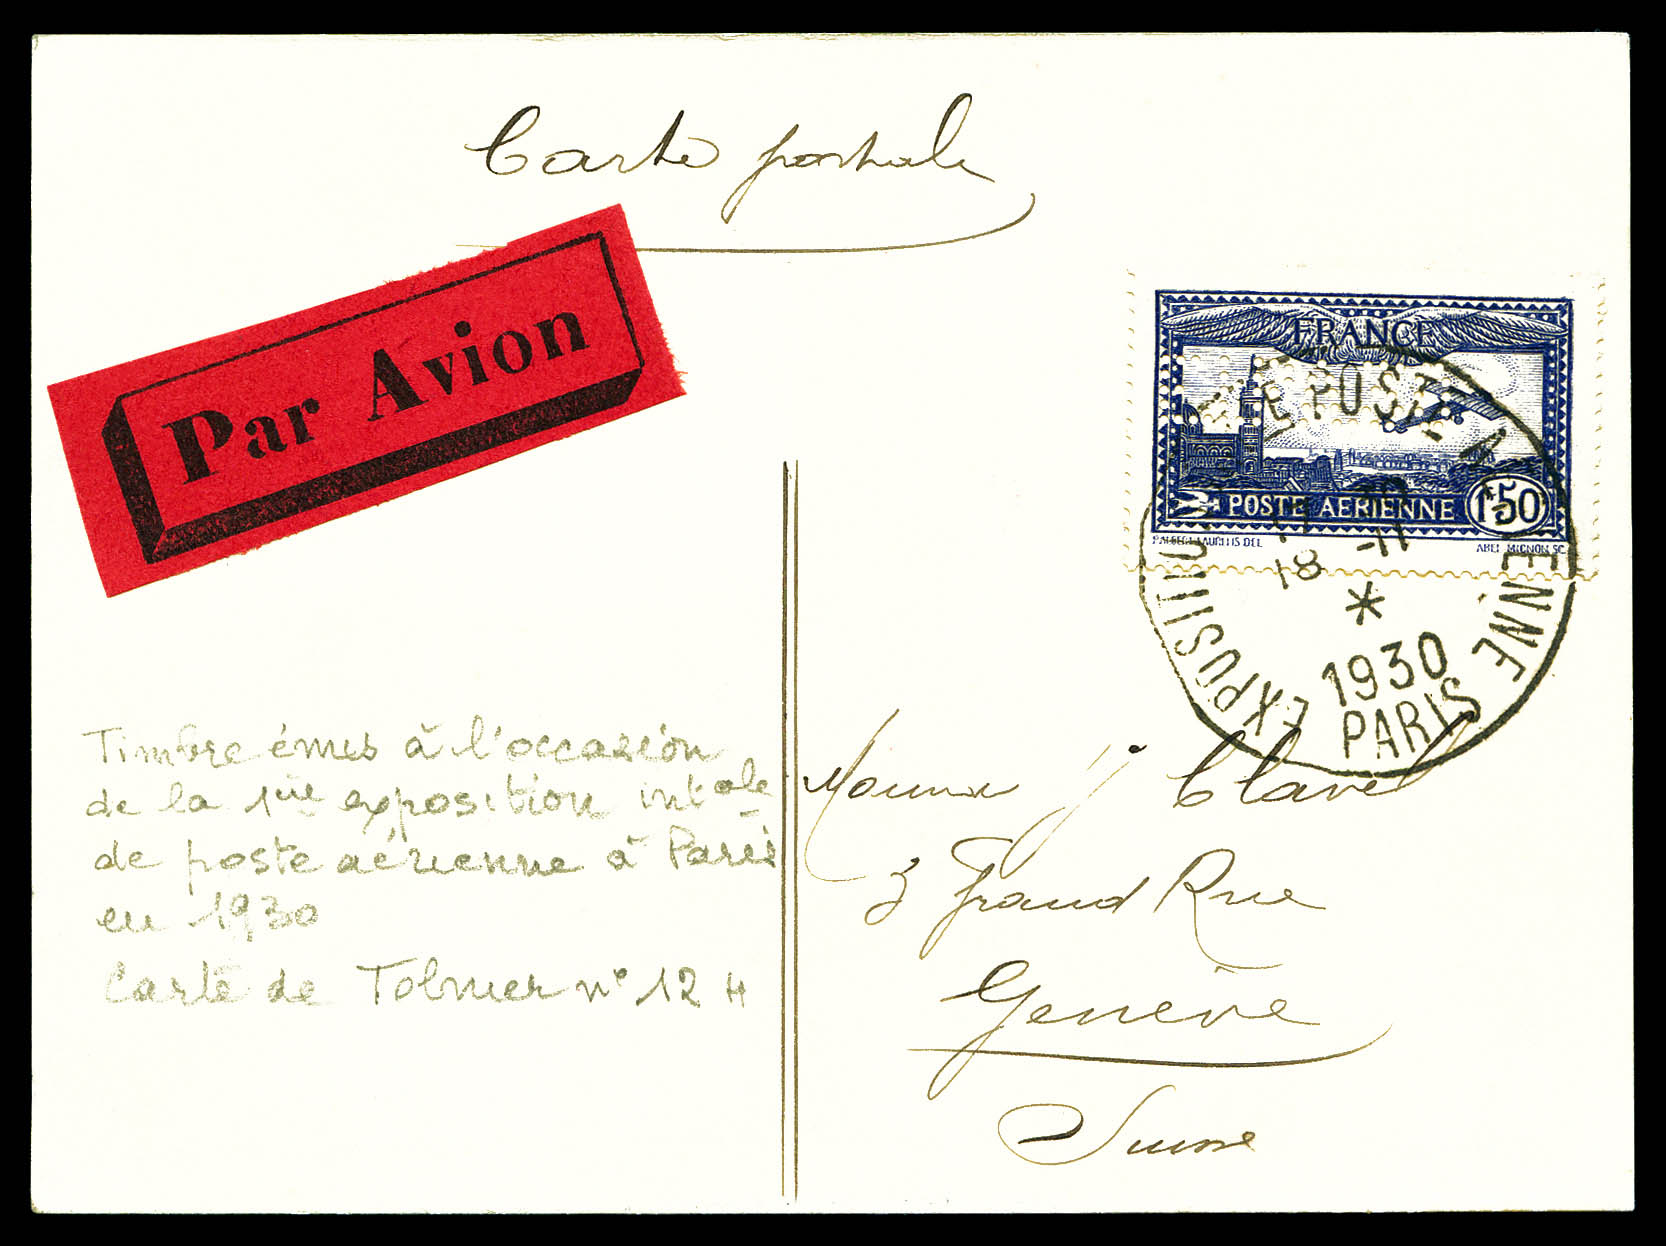 Carte postale
Par Avion
FRANCE
POSTE AERIENNE 1F50
ABEL MIGNON SC.
EXPOSITION DE POSTE AERIENNE
18 -11
*
1930
PARIS
Timbre émis à l'occasion
de la 1ère exposition intale
de poste aérienne à Paris
en 1930
Carte de Tolmer n° 124
Monsieur J. Clavel
3 Grand Rue
Genève
Suisse